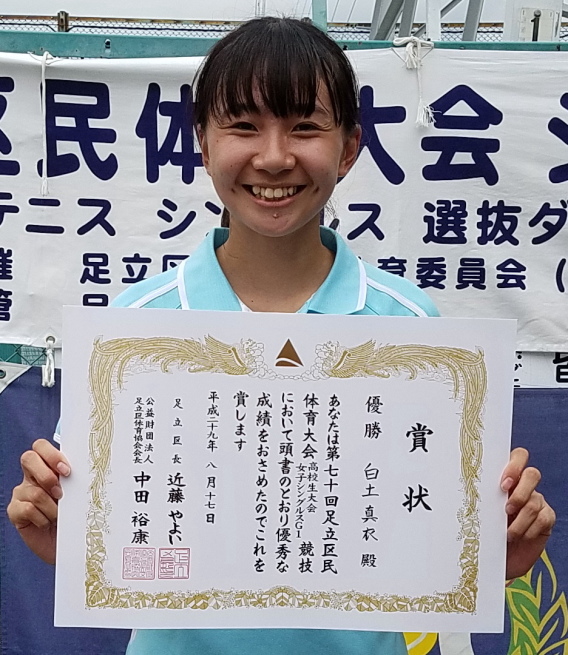 区民体 大会 シ
テニス シングルス 選抜ダ
催 足立区 育委員会（
管 足
賞状
優勝 白土 真衣 殿
あなたは第七十回足立区民
体育大会 高校生大会 女子シングルスG1 競技
において頭書のとおり優秀な
成績をおさめたのでこれを
賞します
平成二十九年 八月十七日
足立区長 近藤 やよい
公益財団法人
足立区体育協会会長 中田 裕康